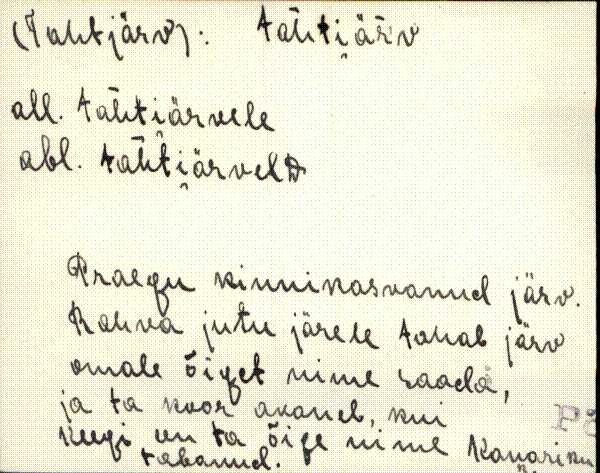 (Tahtjärv): tåhti̯ärv
all. tåhti̯ärvele
abl. tåhti̯ärveld
Praegu kinnikasvanud järv.
Rahva jutu järele tahab järv
omale õiget nime saada,
ja ta koor avaneb, kui
keegi on ta õige nime
tabanud.